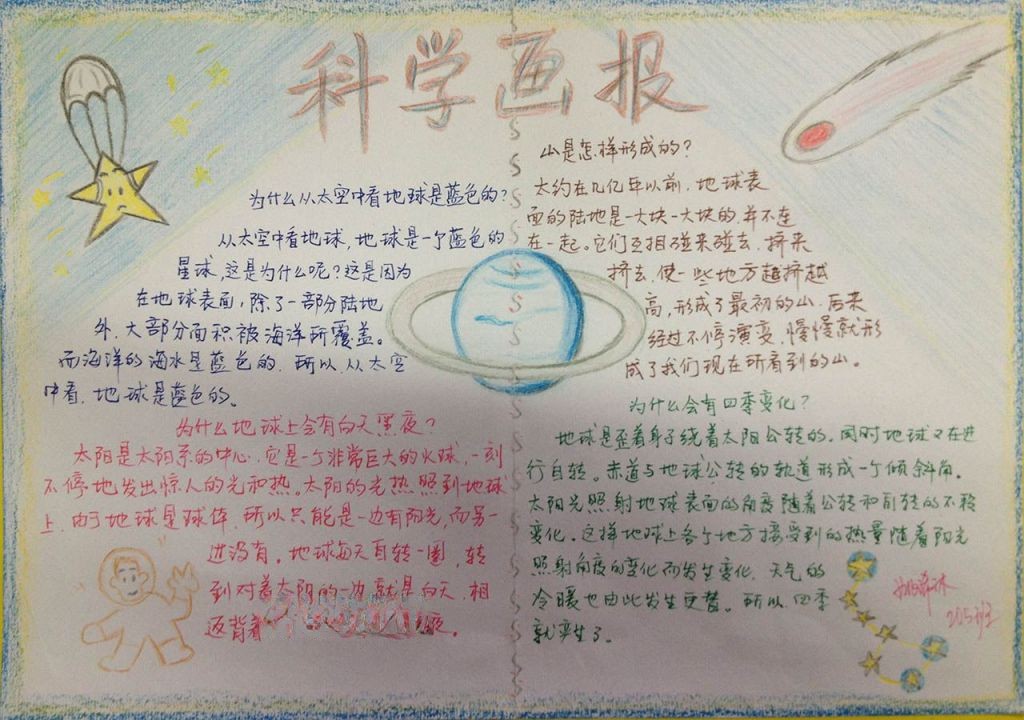 科学画报
为什么从太空中看地球是蓝色的?
从太空中看地球,地球是一个蓝色的
星球,这是为什么呢?这是因为
在地球表面,除了一部分陆地
外,大部分面积被海洋所覆盖。
而海洋的海水是蓝色的,所以,从太空
中看,地球是蓝色的。
为什么地球上会有白天黑夜?
太阳是太阳系的中心,它是一个非常巨大的火球,一刻
不停地发出惊人的光和热。太阳的光热照到地球
上,由于地球是球体,所以只能是一边有阳光,而另一
边没有。地球每天自转一圈,转
到对着太阳的一边就是白天,相
返背着
山是怎样形成的?
大约在几亿年以前,地球表
面的陆地是一大块一大块的,并不连
在一起。它们互相碰来碰去,挤来
挤去,使一些地方越挤越
高,形成了最初的山,后来
经过不停演变,慢慢就形
成了我们现在所看到的山。
为什么会有四季变化?
地球是歪着身子绕着太阳公转的,同时地球又在进
行自转。赤道与地球公转的轨道形成一个倾斜角。
太阳光照射地球表面的角度随着公转和自转的不移
变化,这样地球上各个地方接受到的热量随着阳光
照射角度的变化而发生变化,天气的
冷暖也由此发生更替。所以,四季
就产生了。
205班